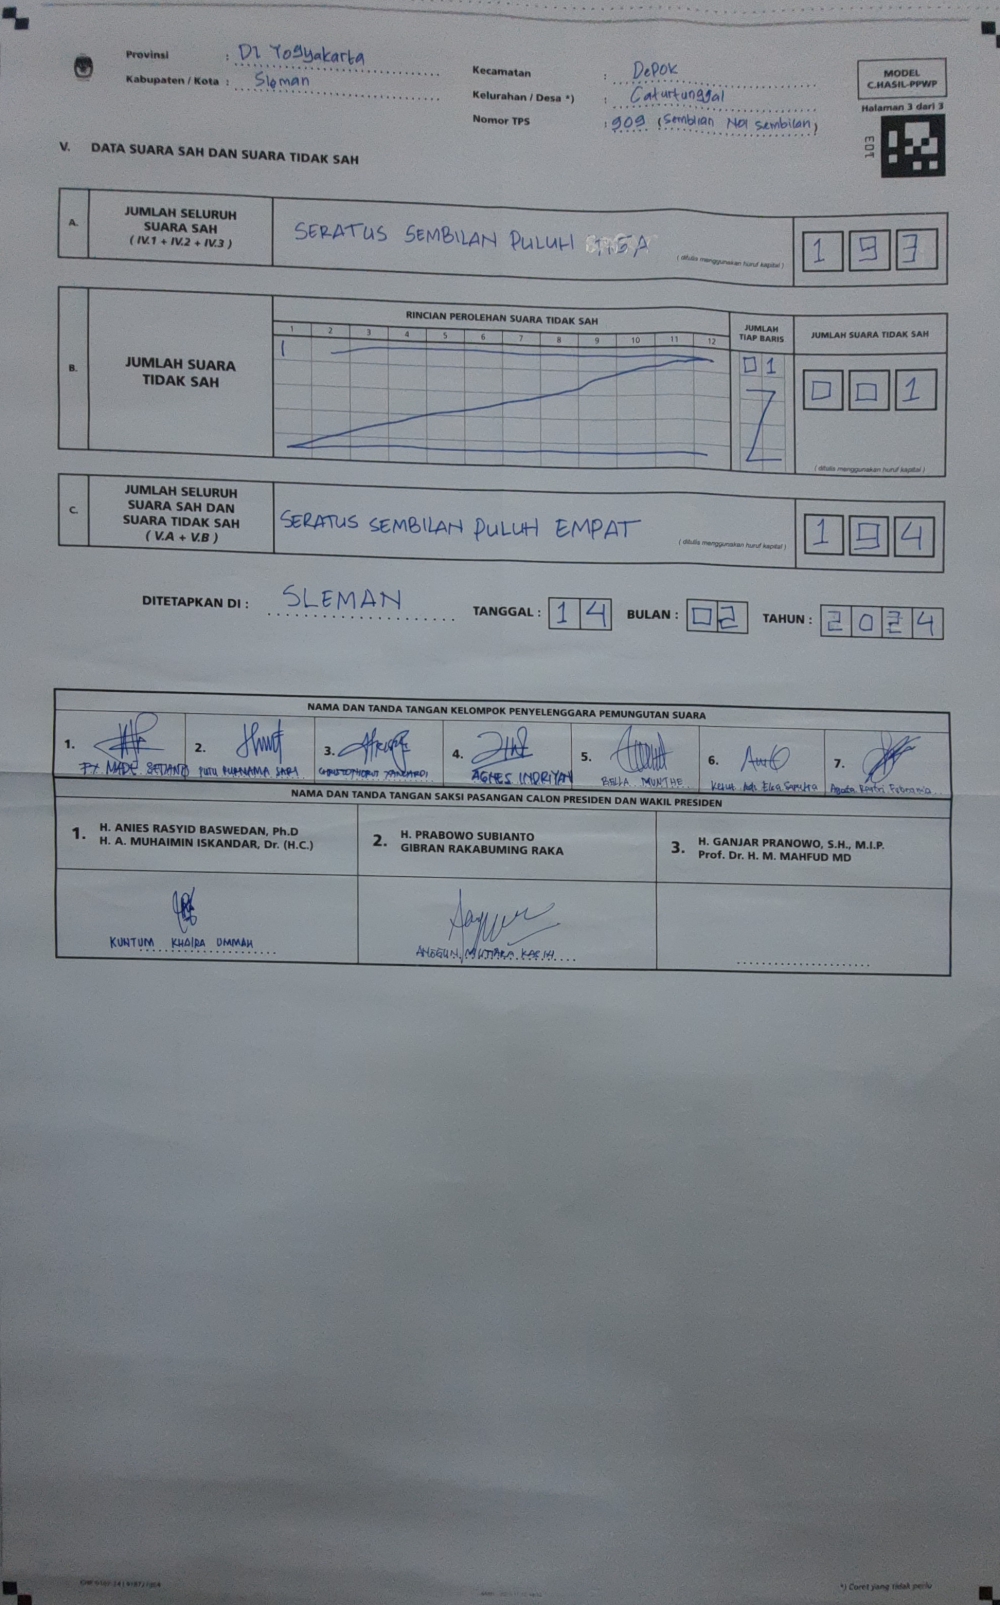 Provinsi : DI Yogyakarta
Kabupaten / Kota : Sleman
Kecamatan : Depok
Kelurahan / Desa *) : Caturtunggal
Nomor TPS : 909 (Sembilan Nol Sembilan)
MODEL
C.HASIL-PPWP
Halaman 3 dari 3
E01
V. DATA SUARA SAH DAN SUARA TIDAK SAH
A. JUMLAH SELURUH
SUARA SAH
( IV.1 + IV.2 + IV.3 )
SERATUS SEMBILAN PULUH TIGA
( ditulis menggunakan huruf kapital )
1 9 3
B. JUMLAH SUARA
TIDAK SAH
RINCIAN PEROLEHAN SUARA TIDAK SAH
1 2 3 4 5 6 7 8 9 10 11 12
JUMLAH
TIAP BARIS
0 1
JUMLAH SUARA TIDAK SAH
0 0 1
( ditulis menggunakan huruf kapital )
C. JUMLAH SELURUH
SUARA SAH DAN
SUARA TIDAK SAH
( V.A + V.B )
SERATUS SEMBILAN PULUH EMPAT
( ditulis menggunakan huruf kapital )
1 9 4
DITETAPKAN DI : SLEMAN TANGGAL : 14 BULAN : 02 TAHUN : 2024
NAMA DAN TANDA TANGAN KELOMPOK PENYELENGGARA PEMUNGUTAN SUARA
1. 2. 3. 4. 5. 6. 7.
FX MADE SEDANO PUTU PURNAMA SARI AGNES INDRIYAN BELLA MUNTHE
NAMA DAN TANDA TANGAN SAKSI PASANGAN CALON PRESIDEN DAN WAKIL PRESIDEN
1. H. ANIES RASYID BASWEDAN, Ph.D
H. A. MUHAIMIN ISKANDAR, Dr. (H.C.)
2. H. PRABOWO SUBIANTO
GIBRAN RAKABUMING RAKA
3. H. GANJAR PRANOWO, S.H., M.I.P.
Prof. Dr. H. M. MAHFUD MD
KUNTUM KHAIRA UMMAH
ANGGUN MUTIARA KASIH
*) Coret yang tidak perlu